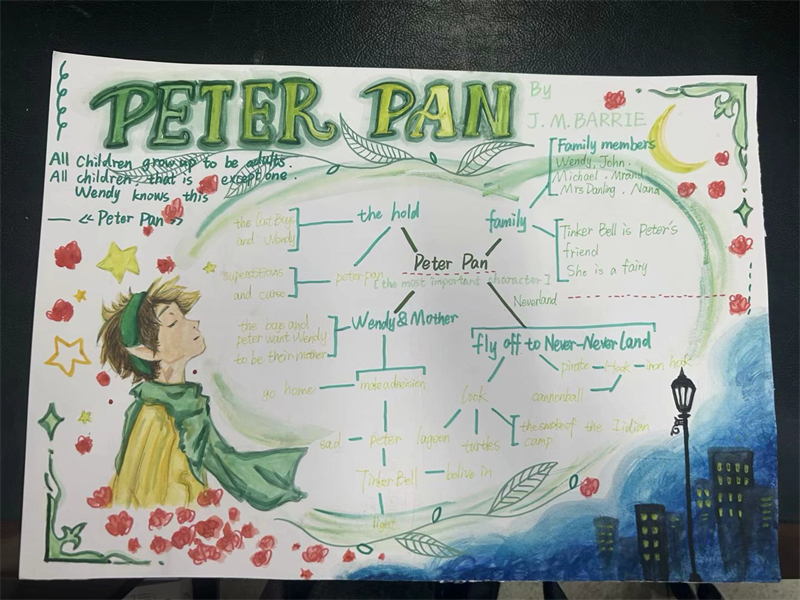 PETER PAN
By
J. M. BARRIE
All Children grow up to be adults.
All children, that is except one.
Wendy knows this
— << Peter Pan >>
Family members
Wendy, John.
Michael. Mr and
Mrs Darling. Nana
the hold
family
the lost Boys
and Wendy
Tinker Bell is Peter's
friend
She is a fairy
Peter Pan
[the most important character]
peter pan
superstitious
and curse
Neverland
Wendy & Mother
the boys and
peter want Wendy
to be their mother
fly off to Never-Never land
pirate — Hook — iron hook
cannonball
go home
make a decision
look
lagoon
turtles
the smoke of the Indian
camp
sad — peter
Tinker Bell — belive in
light